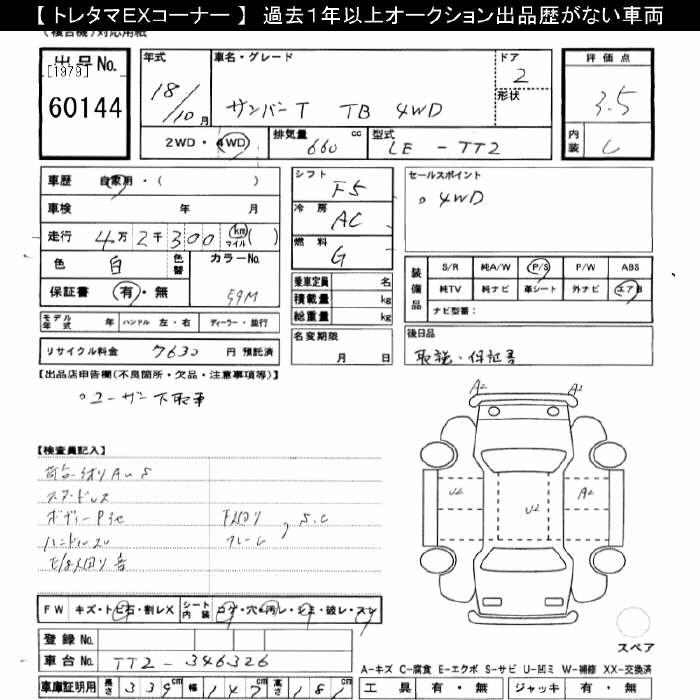 【 トレタマEXコーナー 】 過去1年以上オークション出品歴がない車両
出品No.
[1979]
60144
年式
18/10月
車名・グレード
サンバーT TB 4WD
ドア
2
形状
評価点
3.5
内装
C
2WD・4WD
排気量
660 cc
型式
LE - TT2
車歴 自家用・( )
車検 年 月
走行 4万2千300 km マイル ( )
色 白 色替
カラーNo.
59M
保証書 有・無
シフト
F5
冷房
AC
燃料
G
乗車定員 名
積載量 kg
総重量 kg
名変期限
月 日
セールスポイント
。4WD
装備品
S/R 純A/W P/S P/W ABS
純TV 純ナビ 革シート 外ナビ エアB
ナビ型番:
モデル年式 年 ハンドル 左・右 ディーラー・並行
リサイクル料金 7630 円 預託済
後日品
取説・保証書
【出品店申告欄(不良箇所・欠品・注意事項等)】
。ユーザー下取車
【検査員記入】
下廻り
フレーム
S.C
A2 A2
U2 U2 A2
FW キズ・トビ石・割レX シート内装 コゲ・穴・汚レ・シミ・破レ・スレ
登録 No.
車台 No. TT2-346326
車庫証明用 長さ 339cm 幅 147cm 高さ 181cm
スペア
A-キズ C-腐食 E-エクボ S-サビ U-凹ミ W-補修 XX-交換済
工具 有・無 ジャッキ 有・無